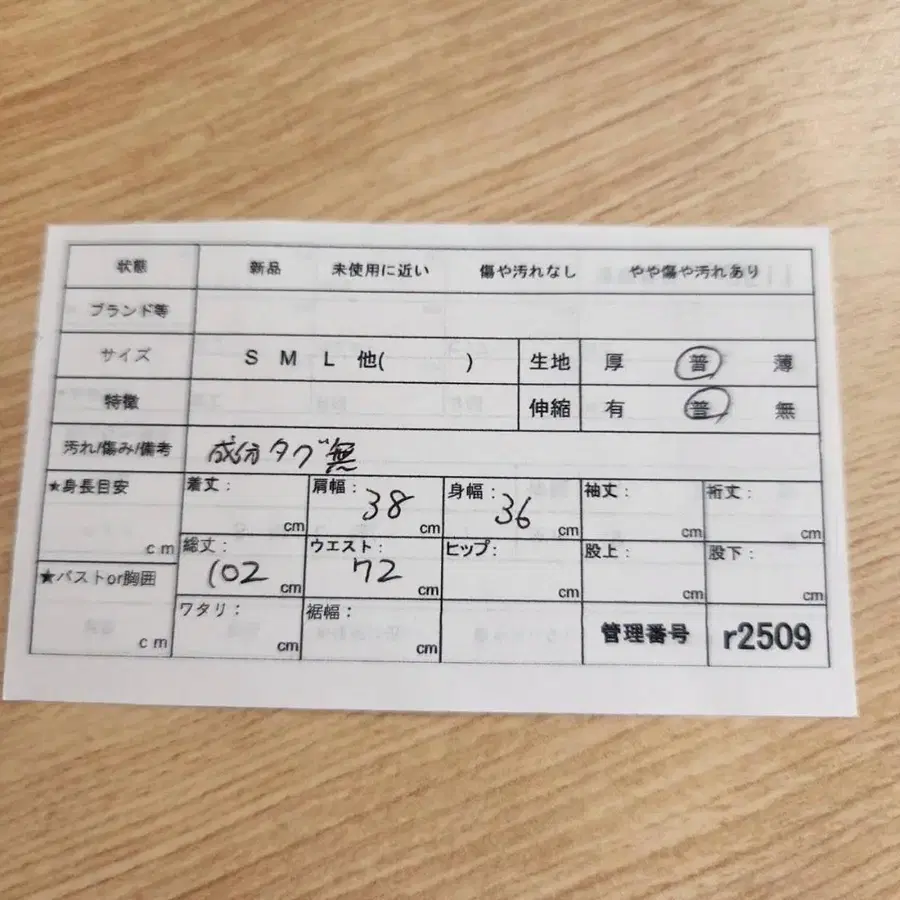 状態 新品 未使用に近い 傷や汚れなし やや傷や汚れあり
ブランド等
サイズ S M L 他( ) 生地 厚 普 薄
特徴 伸縮 有 普 無
汚れ/傷み/備考 成分タグ無
★身長目安 cm 着丈: cm 肩幅: 38 cm 身幅: 36 cm 袖丈: cm 裄丈: cm
総丈: 102 cm ウエスト: 72 cm ヒップ: cm 股上: cm 股下: cm
★バストor胸囲 cm ワタリ: cm 裾幅: cm 管理番号 r2509